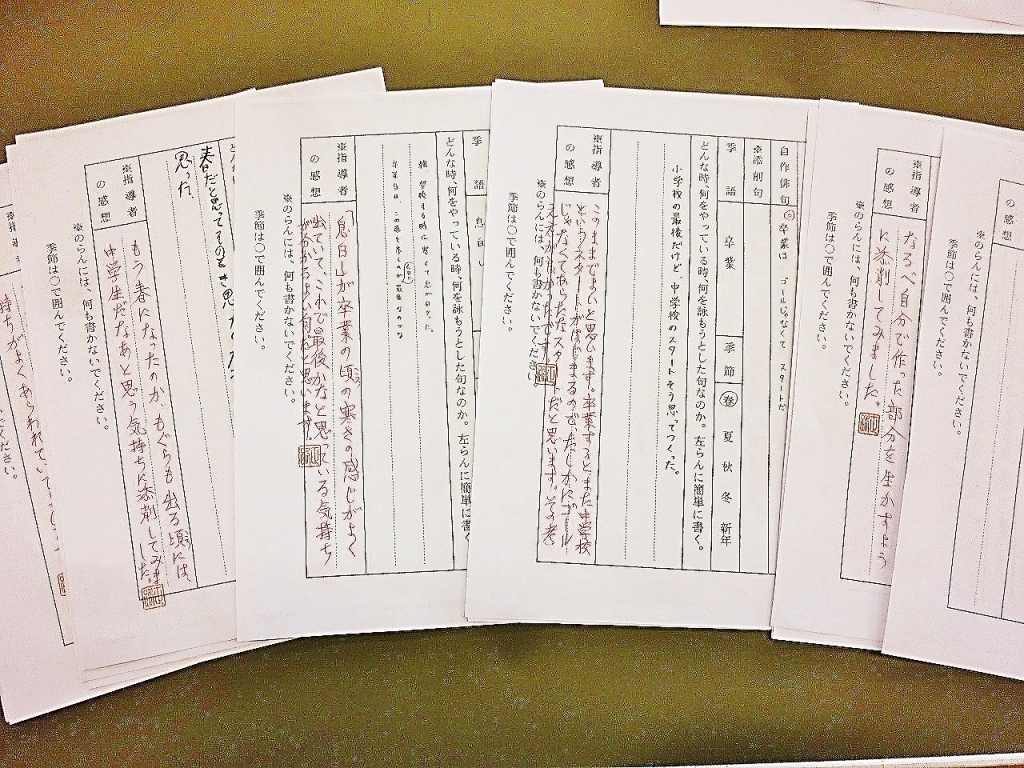 ※のらんには、何も書かないでください。
季節は○で囲んでください。
※指導者の感想
なるべ自分で作った部分を生かすよう
に添削してみました。
※のらんには、何も書かないでください。
季節は○で囲んでください。
自作俳句
卒業は ゴールじゃなくて スタートだ
※添削句
季語 卒業 季節 春 夏 秋 冬 新年
どんな時、何をやっている時、何を詠もうとした句なのか。左らんに簡単に書く。
小学校の最後だけど、中学校のスタートそう思ってつくった。
※指導者の感想
このままでよいと思います。卒業するとまた中学校
というスタートがはじまるので、たしかにゴール
じゃなくてあらたなスタートだと思います。その考
※のらんには、何も書かないでください。
季節は○で囲んでください。
季語 息白し
どんな時、何をやっている時、何を詠もうとした句なのか。左らんに簡単に書く
※指導者の感想
「息白し」が卒業の頃の寒さの感じがよく
出ていて、これで最後かなと思っている気持ち
が分かるよい句だと思います。
※のらんには、何も書かないでください。
季節は○で囲んでください。
春だと思って
思った。
※指導者の感想
もう春になったのか もぐらも出る頃には
中学生だなあと思う気持ちに添削してみました
※のらんには、何も書かないでください。
季節は○で囲んでください。
持ちがよくあらわれてい
ください。